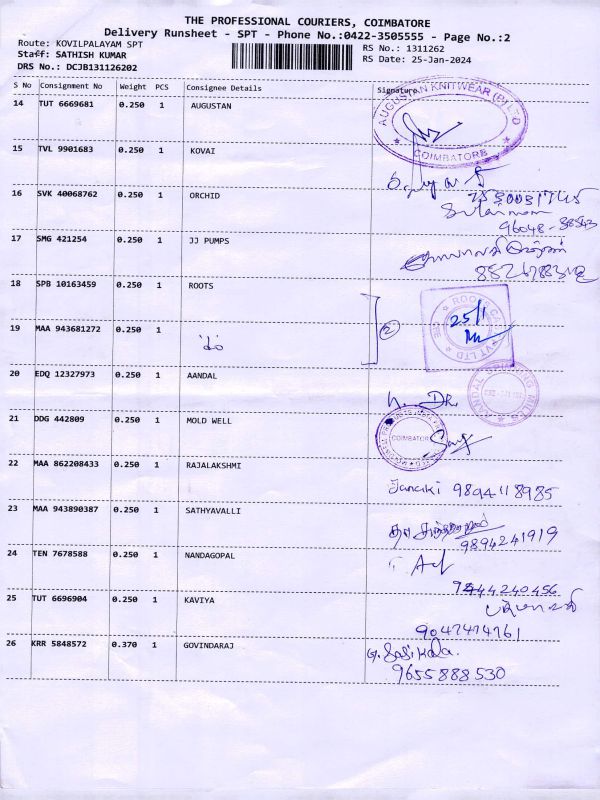 THE PROFESSIONAL COURIERS, COIMBATORE
Delivery Runsheet - SPT - Phone No.:0422-3505555 - Page No.:2
Route: KOVILPALAYAM SPT
RS No.: 1311262
Staff: SATHISH KUMAR
RS Date: 25-Jan-2024
DRS No.: DCJB131126202
S No Consignment No Weight PCS Consignee Details Signature
14 TUT 6669681 0.250 1 AUGUSTAN
AUGUSTAN KNITWEAR (P) LTD
COIMBATORE
15 TVL 9901683 0.250 1 KOVAI
16 SVK 40068762 0.250 1 ORCHID
Sulaiman
96048-38543
17 SMG 421254 0.250 1 JJ PUMPS
18 SPB 10163459 0.250 1 ROOTS
25/1
19 MAA 943681272 0.250 1
2
20 EDQ 12327973 0.250 1 AANDAL
21 DDG 442809 0.250 1 MOLD WELL
COIMBATORE
22 MAA 862208433 0.250 1 RAJALAKSHMI
Janaki 9894118985
23 MAA 943890387 0.250 1 SATHYAVALLI
9894241919
24 TEN 7678588 0.250 1 NANDAGOPAL
25 TUT 6696904 0.250 1 KAVIYA
9047474761
26 KRR 5848572 0.370 1 GOVINDARAJ
G. Sasikala.
9655888530